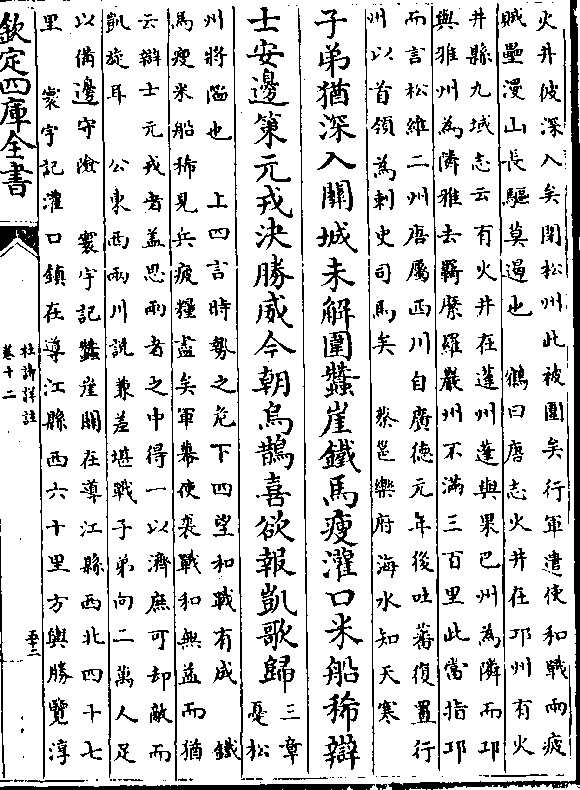 火井彼深入矣閉松州此被圍矣行軍遣使和戰兩疲
賊壘漫山長驅莫遏也　鶴曰唐志火井在邛州有火
井縣九域志云有火井在蓬州蓬與果巴州為隣而邛
與雅州為隣雅去羈縻羅巖州不滿三百里此當指邛
而言松維二州唐屬西川自廣德元年後吐蕃復置行
州以首領為刺史司馬矣　蔡邕樂府海水知天寒
子弟猶深入關城未解圍蠶崖鐵馬瘦灌口米船稀辯
士安邊策元戎決勝威今朝烏鵲喜欲報凱歌歸三章
憂松
州將陷也　上四言時勢之危下四望和戰有成　鐵
馬瘦米船稀見兵疲糧盡矣軍幕使裘戰和無益而猶
云辯士元戎者盖思兩者之中得一以濟庶可却敵而
凱旋耳　公東西兩川說兼羞堪戰子弟向二萬人足
以備邊守險　寰宇記蠶崖關在導江縣西北四十七
里　寰宇記灌口鎮在導江縣西六十里方輿勝覽淳
欽定四庫全書
杜詩詳註
卷十二